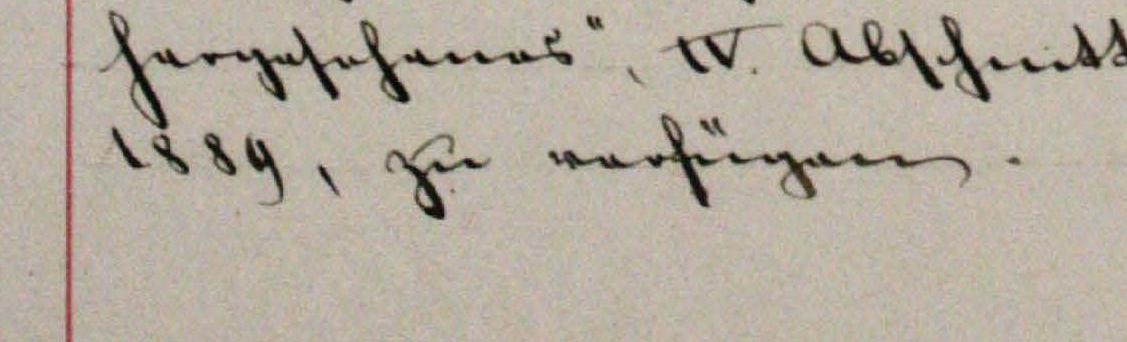 hergesehenes", IV. Abschnitt
1889, zu verfügen.